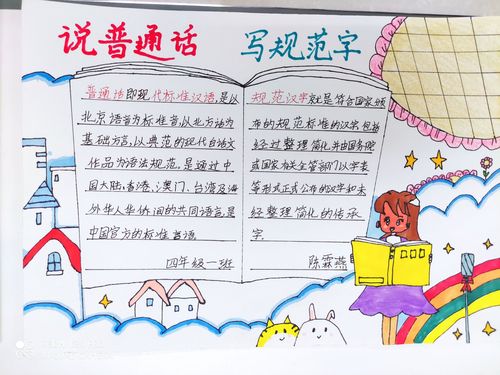 说普通话 写规范字
普通话即现代标准汉语,是以
北京语音为标准音,以北方话为
基础方言,以典范的现代白话文
作品为语法规范,是通过中
国大陆、香港、澳门、台湾及海
外华人华侨间的共同语言,是
中国官方的标准普语
四年级一班
规范汉字就是符合国家颁
布的规范标准的汉字,包括
经过整理简化并由国务院
或国家有关主管部门以字表
等形式正式公布的汉字和未
经整理简化的传承
字
陈霖燕